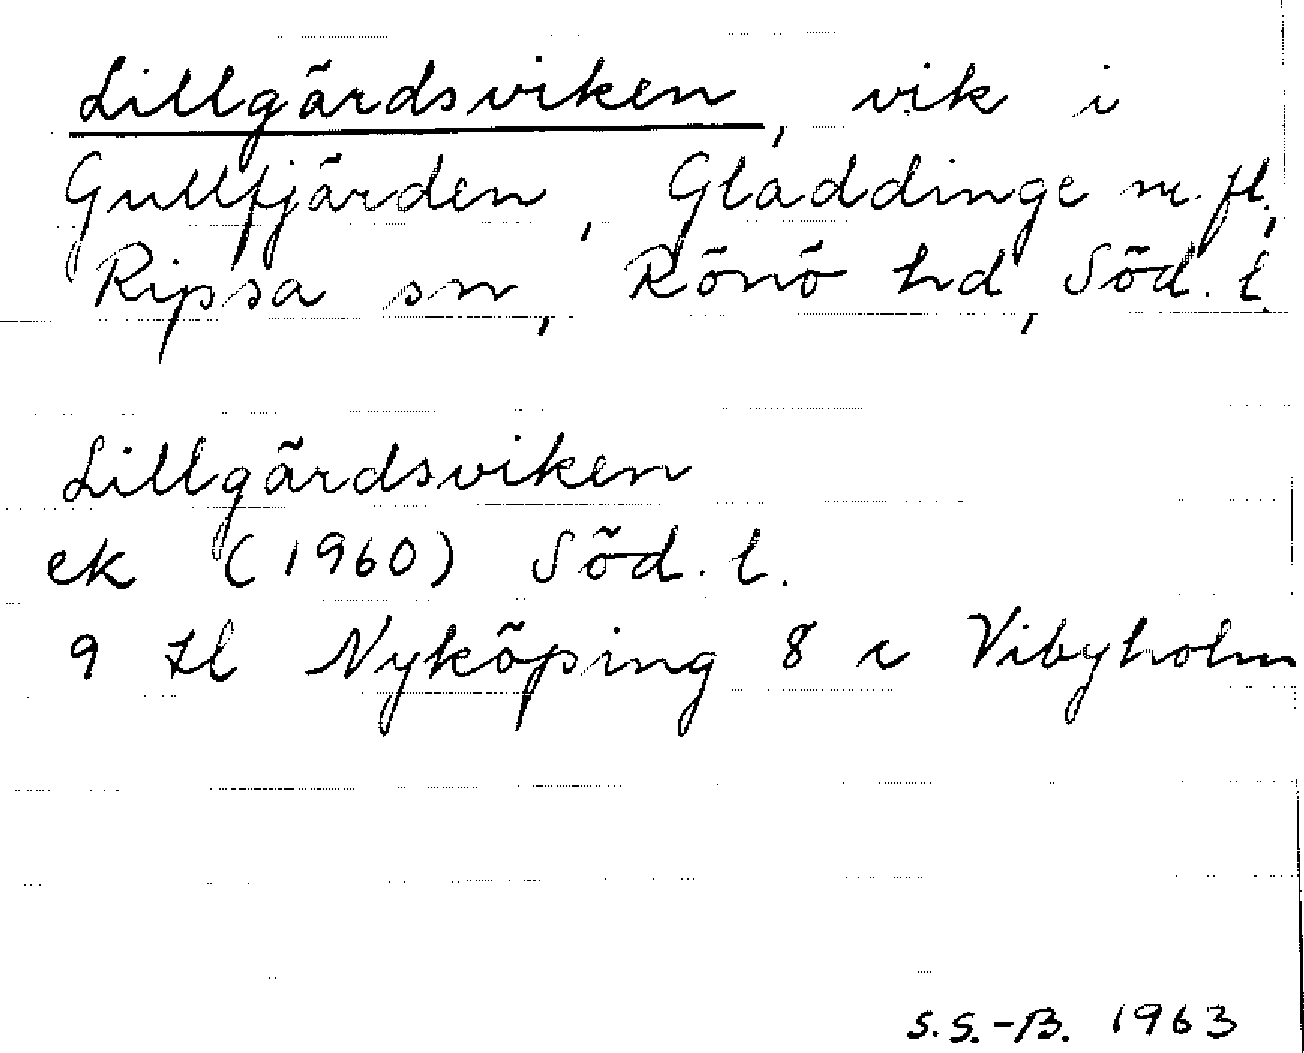 Lillgårdsviken, vik i
Gullfjärden, Gläddinge m.fl.,
Ripsa sn, Rönö hd, Söd. l.
Lillgårdsviken
ek (1960) Söd. l.
9 H Nyköping 8 c Vibyholm
S.S.-B. 1963